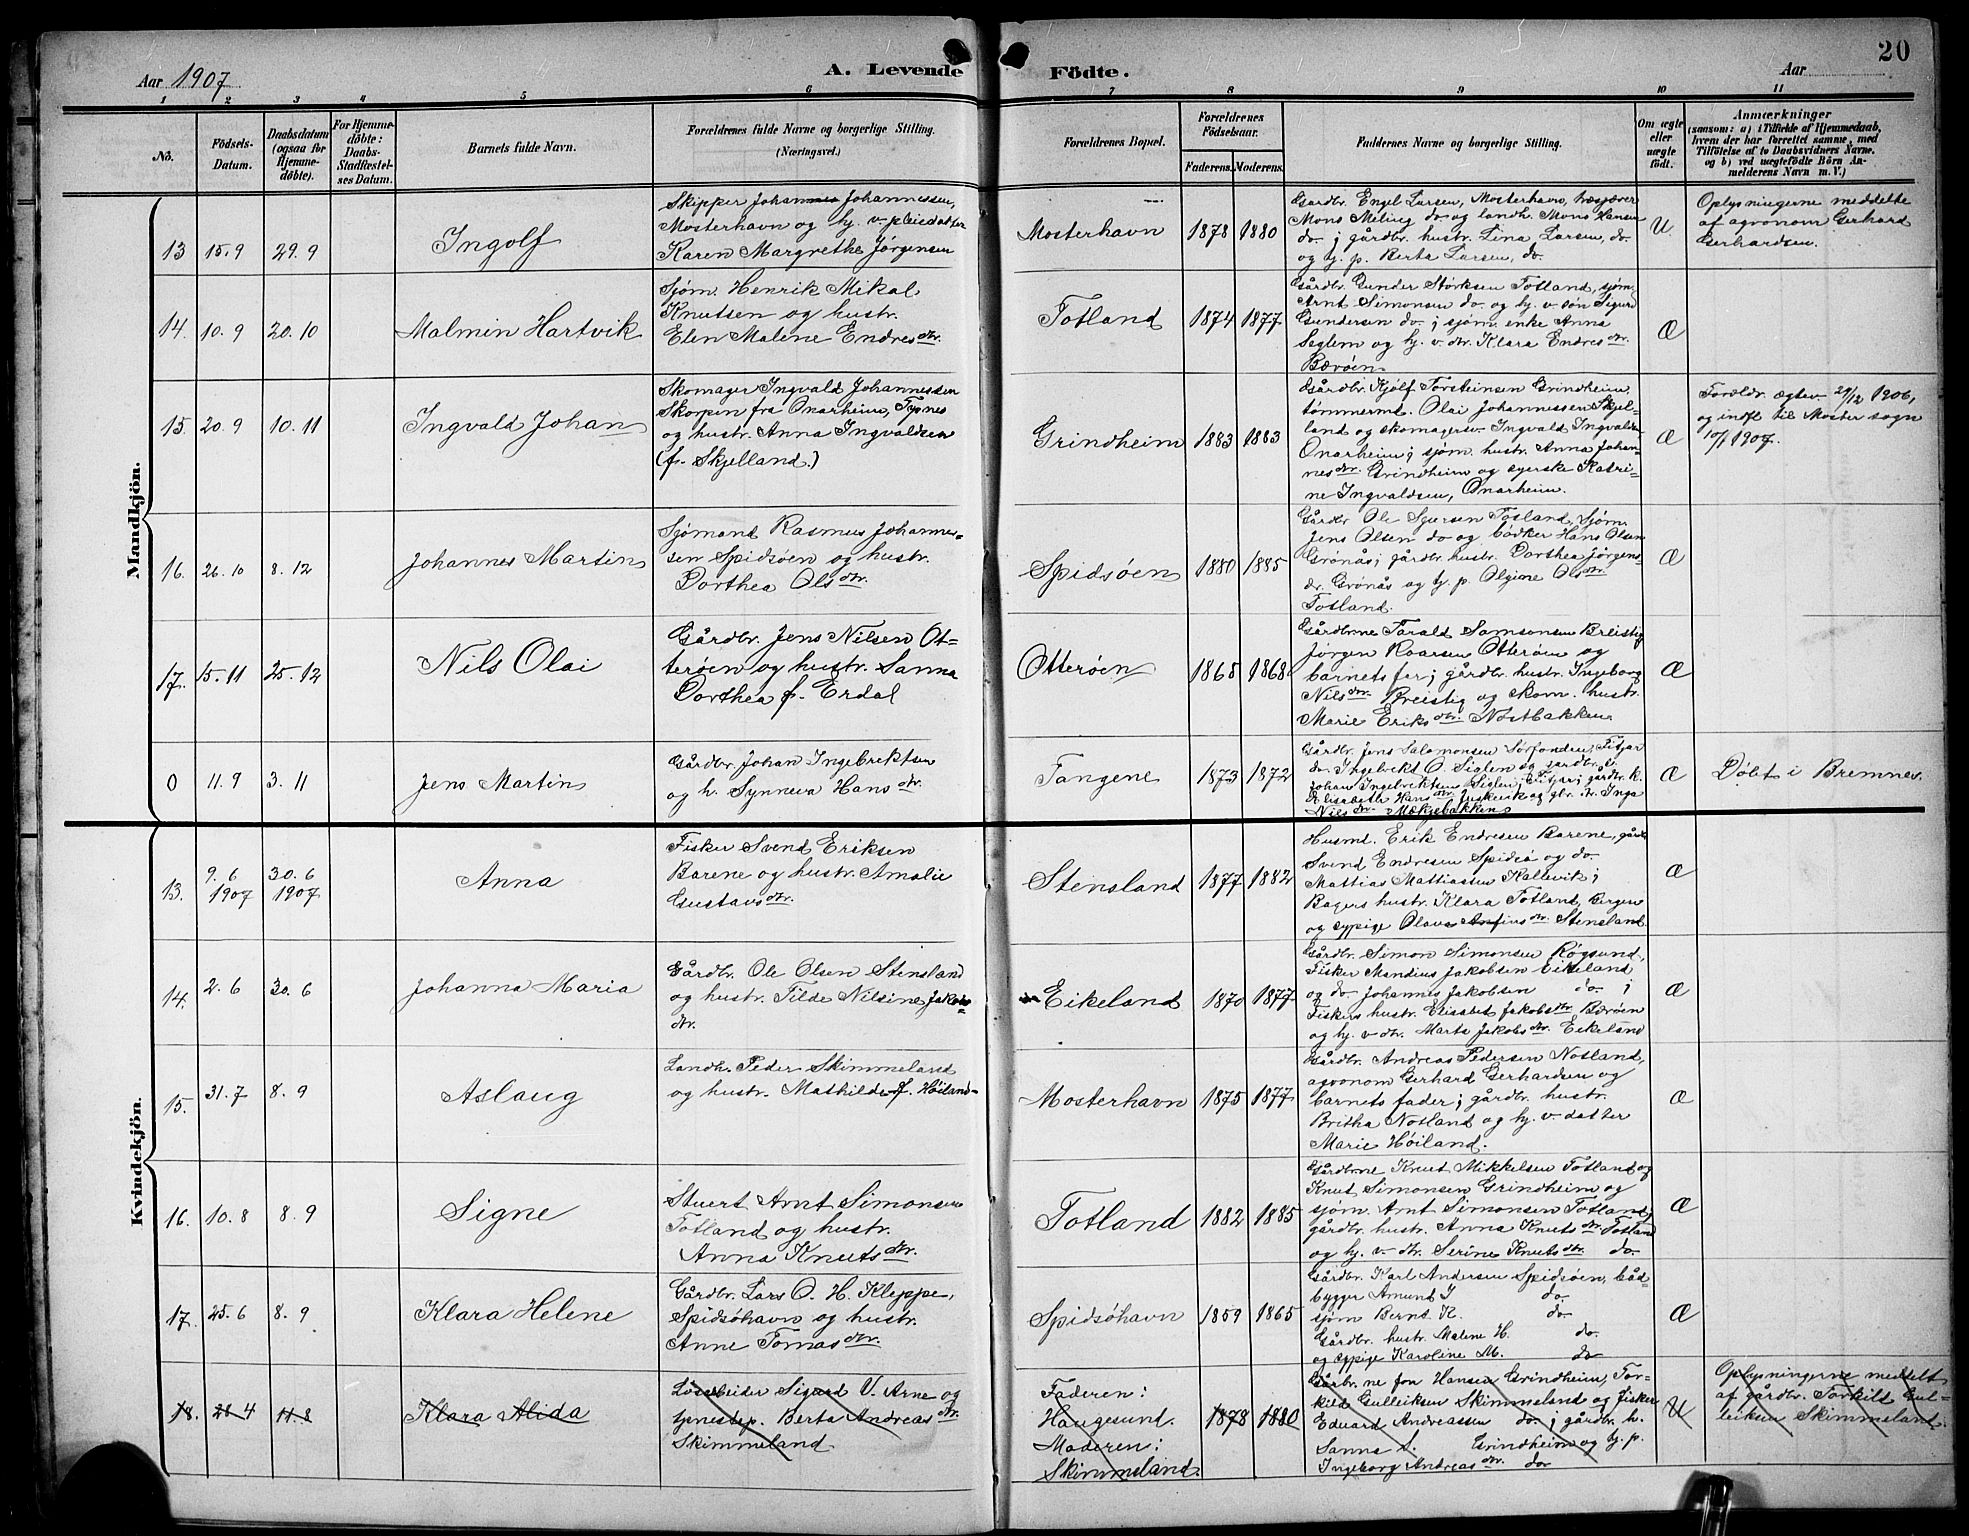 20
Aar 1907
A. Levende Födte.
Aar
1 2 3 4 5 6 7 8 9 10 11
No.
Födsels-
Datum.
Daabsdatum
(ogsaa for
Hjemme-
döbte).
For Hjemme-
döbte:
Daabs-
Stadfæstel-
ses Datum.
Barnets fulde Navn.
Forældrenes fulde Navne og borgerlige Stilling.
(Næringsvei.)
Forældrenes Bopæl.
Forældrenes
Födselsaar.
Faderens. Moderens.
Faddernes Navne og borgerlige Stilling.
Om ægte
eller
uægte
födt.
Anmærkninger
(saasom: a) i Tilfælde af Hjemmedaab,
hvem der har forrettet samme, med
Tilföielse af to Daabsvidners Navne.
og b) ved uægtefödte Börn An-
melderens Navn m. V.)
Mandkjön.
13 15.9 29.9
Ingolf
Skipper Johannes Johannessen,
Mosterhavn og hj. v. pleiedatter
Karen Margrethe Jørgensen
Mosterhavn
1878 1880
Gardbr. Engel Larsen, Mosterhavn,
Mons Meling do og landh. Mons Hansen
do. ; gårdbr. hustr. Lina Larsen, do.
og tj. p. Berta Larsen, do.
U.
Oplysningerne meddelte
af agronom Gerhard
Gerhardsen.
14. 10.9 20.10
Malmin Hartvik
Sjöm. Henrik Mikal
Knutsen og hustr.
Elen Malene Endresdtr.
Totland
1874 1877
Gårdbr. Gunder Størksen Totland, sjöm.
Arnt Simonsen do. og hj. v. søn Sigurd
Gundersen do. ; sjøm. enke Anna
Seglem og hj. v. dtr. Klara Endresdtr.
Bærøen.
Æ
15. 20.9 10.11
Ingvald Johan
Skomager Ingvald Johannessen
Skorpen fra Onarheim, Tysnes
og hustr. Anna Ingvaldsen
(f. Skjelland.)
Grindheim
1883 1883
Gårdbr. Kjölf Torsteinsen Grindheim,
tömmermd. Olai Johannessen Skjel-
land og skomagersv. Ingvald Ingvaldsen
Onarheim; sjøm. hustr. Anna Johan-
nesdtr. Grindheim og syerske Katri-
ne Ingvaldsen, Onarheim.
Æ
Forældr. ægtev. 29/12 1906,
og indfl. til Moster sogn
10/1 1907.
16. 26.10 8.12
Johannes Martin
Sjømand Rasmus Johannes-
sen Spidsöen og hustr.
Dorthea Olsdtr.
Spidsöen
1880 1885
Gårdbr. Ole Sjursen Totland, Sjöm.
Jens Olsen do og bödker Hans Olsen
Grönås; gårdbr. hustr. Dorthea Jörgens-
dr. Grönås og tj. p. Olgine Olsdtr.
Totland.
Æ
17. 15.11 25.12
Nils Olai
Gårdbr. Jens Nilsen Ot-
teröen og hustr. Sanna
Dorthea f. Erdal
Otteröen
1865 1868
Gårdbrne Tarald Samsonsen Breistig,
Jörgen Roarsen Otteröen og
barnets far; gårdbr. hustr. Ingeborg
Nilsdtr. Breistig og skom. hustr.
Marie Eriksdtr. Nostbakken
Æ
0 11.9 3.11
Jens Martin
Gårdbr. Johan Ingebrektsen
og h. Synneva Hansdtr.
Tangene
1873 1872
Gårdbr. Jens Salomonsen Fitjar
do. Ingebrekt O. Siglen og gardbr.
Johan Ingebrektsen Siglen, Fitjar; gårdbr. h.
Elisabeth Hansdtr. og gbr. dtr. Inga
Nilsdtr. Mækjebakken
Æ
Döbt i Bremnes.
Kvindekjön.
13. 9.6 1907 30.6 1907
Anna
Fisker Svend Eriksen
Barene og hustr. Amalie
Gustavsdtr.
Stensland
1877 1882
Husmd. Erik Endresen Barene, gårdb.
Svend Endresen Spidsö og do.
Mattias Mattiassen Kallevik;
Bagers hustr. Klara Totland, Bergen
og sypige Olava Antinsdtr. Stensland.
Æ
14. 2.6 30.6
Johanna Maria
Gårdbr. Ole Olsen Stensland
og hustr. Tilde Nilsine Jakobs-
dtr.
Eikeland
1870 1877
Gårdbr. Simon Simonsen Røgsund,
Fisker Mandius Jakobsen Eikeland
og do. Johannes Jakobsen do. ;
Fiskers hustr. Elisabet Jakobsdtr. Bæröen
og hj. v. dtr. Marta Jakobsdtr. Eikeland
Æ
15. 31.7 8.9
Aslaug
Landh. Peder Skimmeland
og hustr. Mathilde f. Høiland
Mosterhavn
1875 1877
Gårdbr. Andreas Pedersen Notland,
agronom Gerhard Gerhardsen og
barnets fader; gårdbr. hustr.
Britha Notland og hj. v. datter
Marie Høiland.
Æ
16. 10.8 8.9
Signe
Stuert Arnt Simonsen
Totland og hustr.
Anna Knutsdtr.
Totland
1882 1885
Gårdbrne Knut Mikkelsen Totland og
Knut Simonsen Grindheim og
sjøm. Arnt Simonsen Totland;
gårdbr. hustr. Anna Knutsdtr. Totland
og hj. v. dtr. Serine Knutsdtr. do.
Æ
17. 25.6 8.9
Klara Helene
Gårdbr. Lars O. H. Kleppe,
Spidsöhavn og hustr.
Anne Tomasdtr.
Spidsöhavn
1859 1865
Gårdbr. Karl Andersen Spidsöen, båd-
bygger Amund J do.
sjöm Bernt K. do.
Gårdbr. hustr. Malene H. do.
og sypige Karoline M. do
Æ
18. 28.4 11.8
Klara Alida
Lösarbeider Sigurd V. Arne og
tjenestep. Berta Andreasdtr.
Skimmeland
Faderen:
Haugesund.
Moderen:
Skimmeland.
1878 1880
Gårbr.ne Jon Hansen Grindheim, Tor-
kild Gulleiksen Skimmeland og Fisker
Eduard Andreassen do. ; gårdbr. h.
Sanna S. Grindheim og tj. p.
Ingeborg Andreasdtr. do.
U
Oplysningerne meddelt
af gårdbr. Torkild Gul-
leiksen Skimmeland.